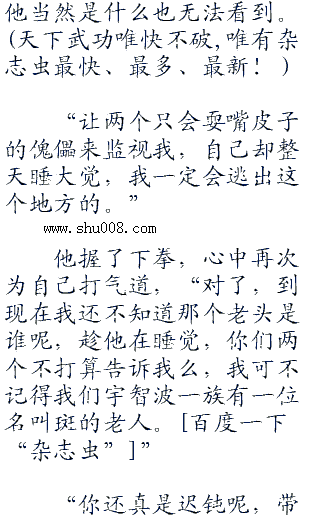 他当然是什么也无法看到。
(天下武功唯快不破,唯有杂
志虫最快、最多、最新！)
“让两个只会耍嘴皮子
的傀儡来监视我，自己却整
天睡大觉，我一定会逃出这
个地方的。”
www.shu008.com
他握了下拳，心中再次
为自己打气道，“对了，到
现在我还不知道那个老头是
谁呢，趁他在睡觉，你们两
个不打算告诉我么，我可不
记得我们宇智波一族有一位
名叫斑的老人。[百度一下
“杂志虫”]”
“你还真是迟钝呢，带